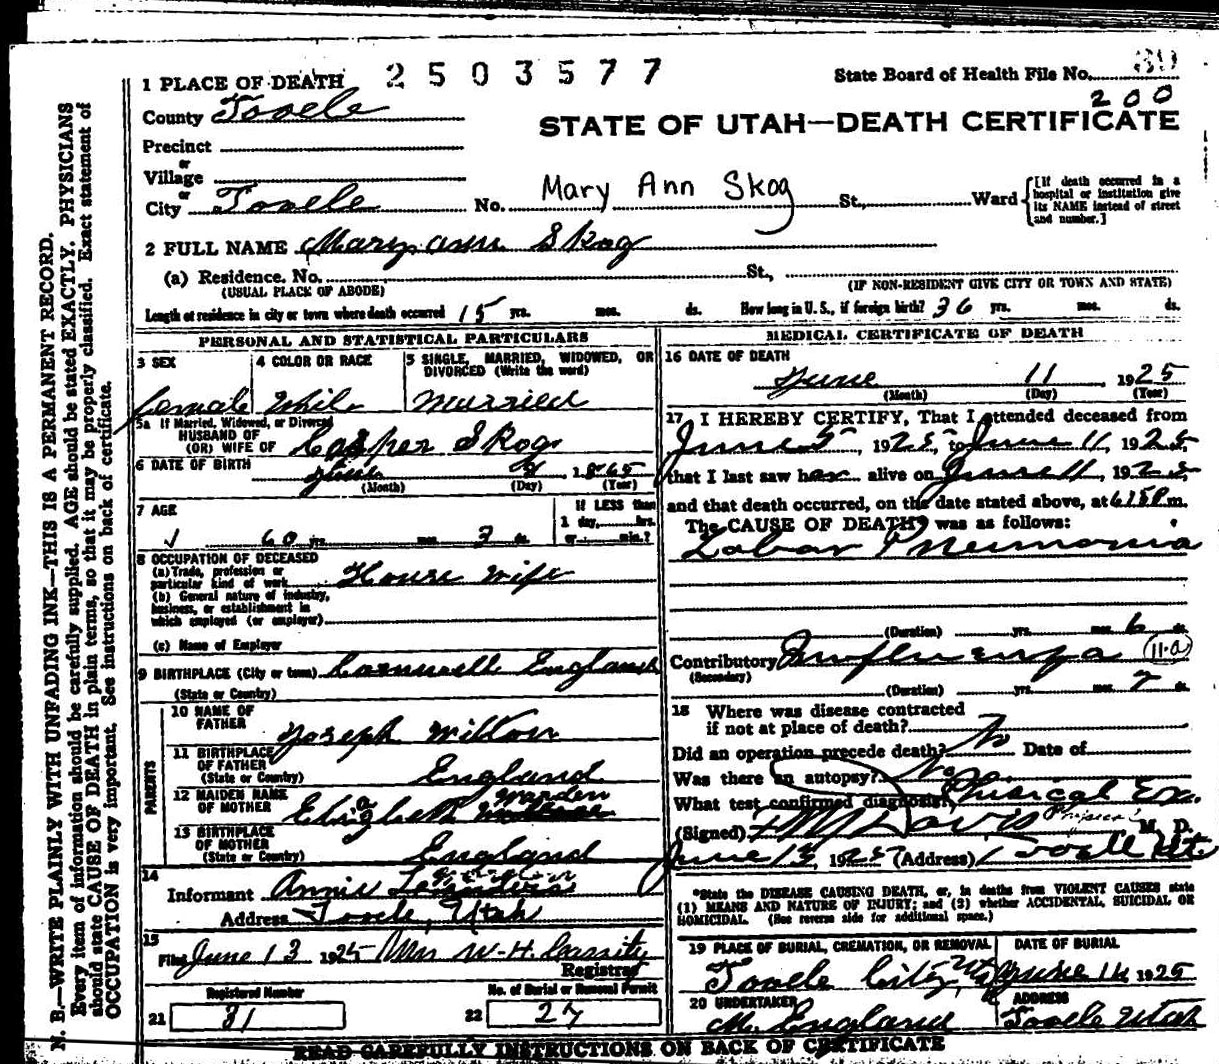 1 PLACE OF DEATH 2503577 State Board of Health File No.
200
County Tooele
STATE OF UTAH—DEATH CERTIFICATE
Precinct
or
Village
or
City Tooele No. Mary Ann Skog St., Ward [If death occurred in a hospital or institution give its NAME instead of street and number.]
2 FULL NAME Mary Ann Skog
(a) Residence. No. St.,
(USUAL PLACE OF ABODE) (IF NON-RESIDENT GIVE CITY OR TOWN AND STATE)
Length of residence in city or town where death occurred 15 yrs. mos. ds. How long in U. S., if foreign birth? 36 yrs. mos. ds.
PERSONAL AND STATISTICAL PARTICULARS
3 SEX
Female
4 COLOR OR RACE
White
5 SINGLE, MARRIED, WIDOWED, OR
DIVORCED (Write the word)
Married
5a If Married, Widowed, or Divorced
HUSBAND OF
(OR) WIFE OF Casper Skog
6 DATE OF BIRTH June 1865
(Month) (Day) (Year)
7 AGE
60 yrs. mos. 3 ds.
If LESS than
1 day, hrs.
or min.?
8 OCCUPATION OF DECEASED
(a) Trade, profession or
particular kind of work House wife
(b) General nature of industry,
business, or establishment in
which employed (or employer)
(c) Name of Employer
9 BIRTHPLACE (City or town) Cornwell England
(State or Country)
PARENTS
10 NAME OF
FATHER Joseph
11 BIRTHPLACE
OF FATHER
(State or Country) England
12 MAIDEN NAME
OF MOTHER Elizabeth Warden
13 BIRTHPLACE
OF MOTHER
(State or Country) England
14
Informant Annie
Address Tooele, Utah
15
Filed June 13 1925 Mrs W. H. Cassity
Registrar
Registered Number
21 31
No. of Burial or Removal Permit
22 27
MEDICAL CERTIFICATE OF DEATH
16 DATE OF DEATH
June 11, 1925
(Month) (Day) (Year)
17 I HEREBY CERTIFY, That I attended deceased from
June 5, 1925, to June 11, 1925,
that I last saw her alive on June 11, 1925,
and that death occurred, on the date stated above, at 615P m.
The CAUSE OF DEATH* was as follows:
Lobar Pneumonia
(Duration) yrs. mos. 6 ds.
Contributory Influenza (11-a)
(Secondary)
(Duration) yrs. mos. 7 ds.
18 Where was disease contracted
if not at place of death?
Did an operation precede death? No Date of
Was there an autopsy? No
What test confirmed diagnosis? Phisical Ex.
(Signed) Davis M. D.
June 13, 1925 (Address) Tooele Ut.
*State the DISEASE CAUSING DEATH, or, in deaths from VIOLENT CAUSES state
(1) MEANS AND NATURE OF INJURY; and (2) whether ACCIDENTAL, SUICIDAL OR
HOMICIDAL. (See reverse side for additional space.)
19 PLACE OF BURIAL, CREMATION, OR REMOVAL
Tooele City, Ut
DATE OF BURIAL
June 14 1925
20 UNDERTAKER
M. England
ADDRESS
Tooele Utah
READ CAREFULLY INSTRUCTIONS ON BACK OF CERTIFICATE
N. B.—WRITE PLAINLY WITH UNFADING INK—THIS IS A PERMANENT RECORD.
Every item of information should be carefully supplied. AGE should be stated EXACTLY. PHYSICIANS
should state CAUSE OF DEATH in plain terms, so that it may be properly classified. Exact statement of
OCCUPATION is very important. See instructions on back of certificate.